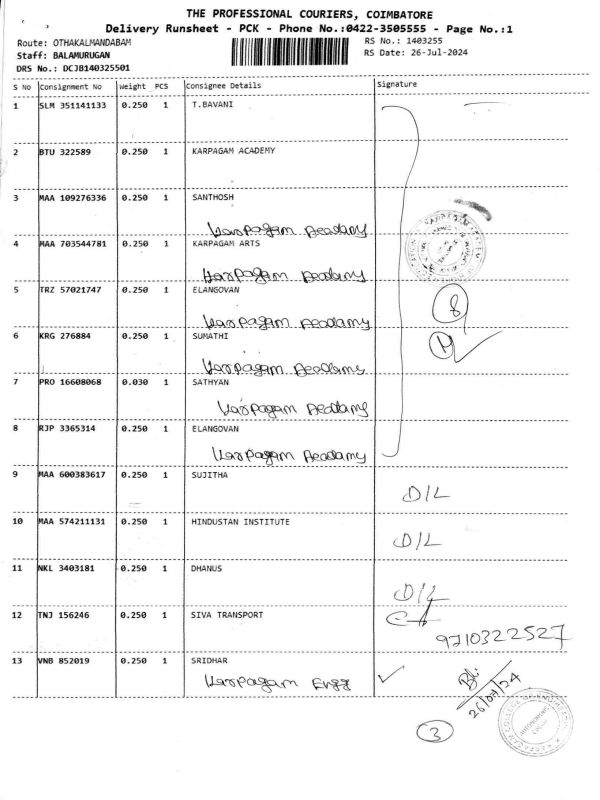 THE PROFESSIONAL COURIERS, COIMBATORE
Delivery Runsheet - PCK - Phone No.:0422-3505555 - Page No.:1
Route: OTHAKALMANDABAM RS No.: 1403255
Staff: BALAMURUGAN RS Date: 26-Jul-2024
DRS No.: DCJB140325501
S No Consignment No Weight PCS Consignee Details Signature
1 SLM 351141133 0.250 1 T.BAVANI
2 BTU 322589 0.250 1 KARPAGAM ACADEMY
3 MAA 109276336 0.250 1 SANTHOSH
Karpagam Acadamy
4 MAA 703544781 0.250 1 KARPAGAM ARTS
Karpagam Acadamy
5 TRZ 57021747 0.250 1 ELANGOVAN 8
Karpagam Acadamy
6 KRG 276884 0.250 1 SUMATHI
Karpagam Acadamy
7 PRO 16608068 0.030 1 SATHYAN
Karpagam Acadamy
8 RJP 3365314 0.250 1 ELANGOVAN
Karpagam Acadamy
9 MAA 600383617 0.250 1 SUJITHA
D/L
10 MAA 574211131 0.250 1 HINDUSTAN INSTITUTE
D/L
11 NKL 3403181 0.250 1 DHANUS
D/L
12 TNJ 156246 0.250 1 SIVA TRANSPORT
9710322527
13 VNB 852019 0.250 1 SRIDHAR
Karpagam Engg
26/07/24
3
KARPAGAM COLLEGE OF ENGINEERING
AUTONOMOUS